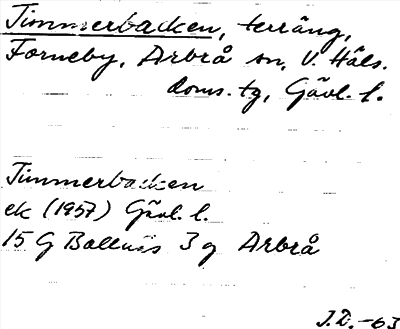 Timmerbacken, terräng,
Forneby, Arbrå sn, V. Häls.
doms.tg, Gävl. l.
Timmerbacken
ek (1957) Gävl. l.
15 G Bollnäs 3 g Arbrå
J.D.-63